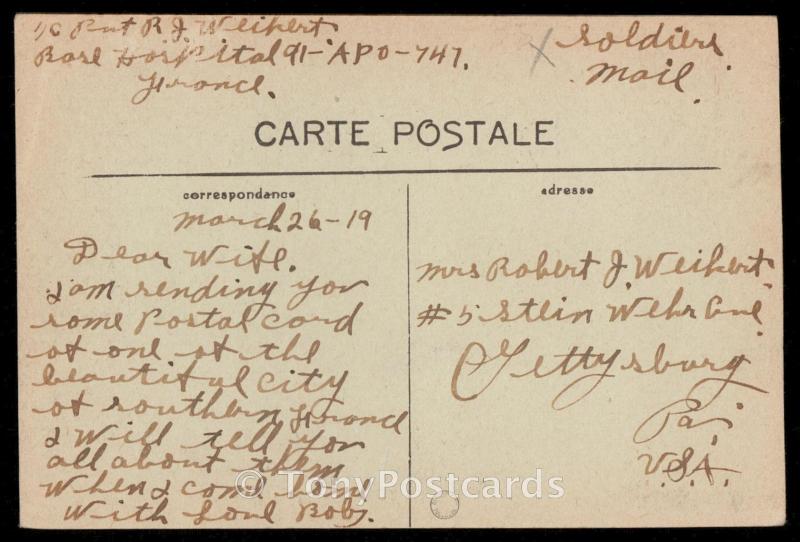 1/c Pvt R. J. Weikert
Base Hospital 91-APO-747.
France.
X Soldiers
Mail.
CARTE POSTALE
correspondance
adresse
March 26-19
Dear Wife.
I am sending you
some Postal card
of one of the
beautiful city
of southern France
I will tell you
all about them
When I come home
With Love Bob.
Mrs Robert J. Weikert
#5 Stein Wehr Ave
Gettysburg
Pa.
U.S.A.
© TonyPostcards